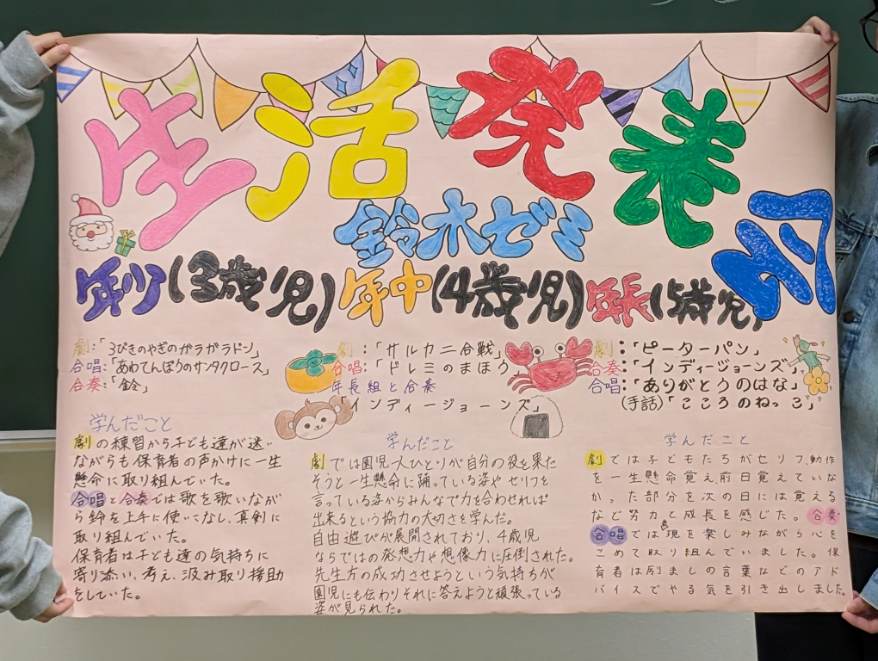 生活発表会
鈴木ゼミ
年少(3歳児)
劇:「3びきのやぎのガラガラドン」
合唱:「あわてんぼうのサンタクロース」
合奏:「鈴」
学んだこと
劇の練習から子ども達が迷い
ながらも保育者の声かけに一生
懸命に取り組んでいた。
合唱と合奏では歌を歌いなが
ら鈴を上手に使いこなし、真剣に
取り組んでいた。
保育者は子ども達の気持ちに
寄り添い、考え、汲み取り援助
をしていた。
年中(4歳児)
劇:「サルカニ合戦」
合唱:「ドレミのまほう」
年長組と合奏
「インディージョーンズ」
学んだこと
劇では園児一人ひとりが自分の役を果た
そうと一生懸命に踊っている姿やセリフを
言っている姿からみんなで力を合わせれば
出来るという協力の大切さを学んだ。
自由遊びが展開されており、4歳児
ならではの発想力や想像力に圧倒された。
先生方の成功させようという気持ちが
園児にも伝わりそれに答えようと頑張っている
姿が見られた。
年長(5歳児)
劇:「ピーターパン」
合奏:「インディージョーンズ」
合唱:「ありがとうのはな」
(手話)「こころのねっこ」
学んだこと
劇では子どもたちがセリフ、動作
を一生懸命覚え前日覚えていな
かった部分を次の日には覚える
など努力と成長を感じた。合奏
合唱では表現を楽しみながら心を
こめて取り組んでいました。保
育者は励ましの言葉などのアド
バイスでやる気を引き出しました。